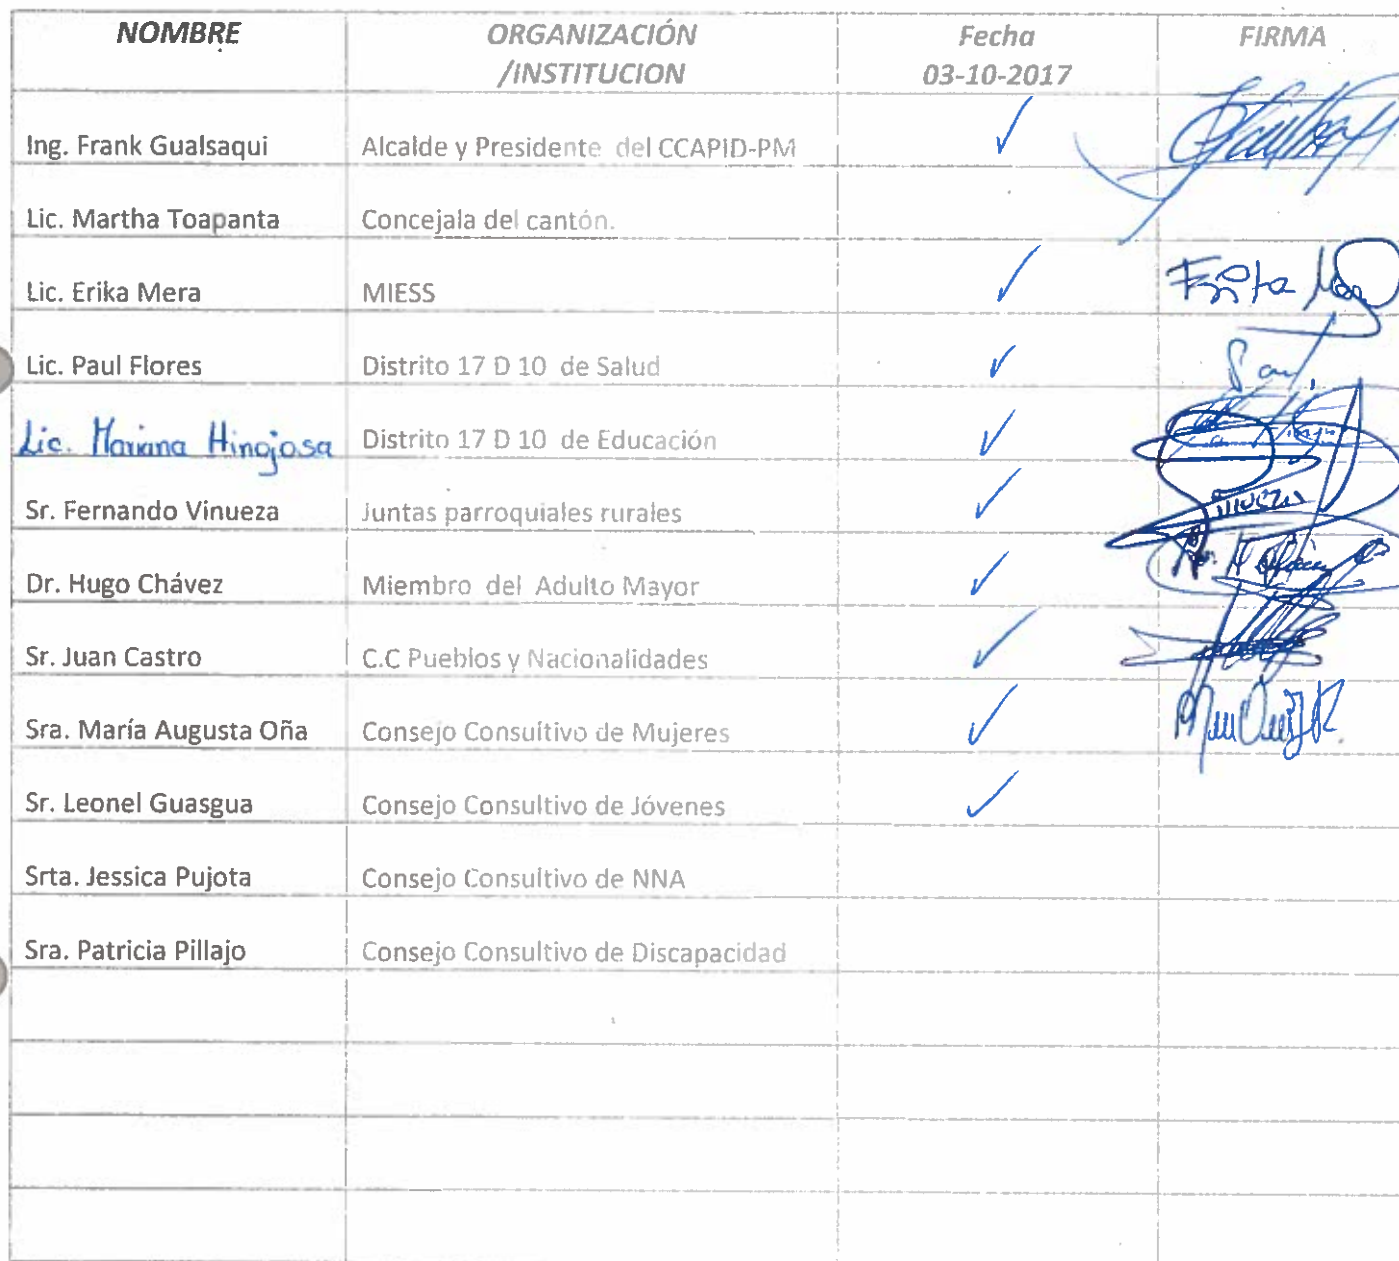 NOMBRE ORGANIZACIÓN Fecha FIRMA
/INSTITUCION 03-10-2017
Ing. Frank Gualsaqui Alcalde y Presidente del CCAPID-PM
Lic. Martha Toapanta Concejala del cantón.
Lic. Erika Mera MIESS
Lic. Paul Flores Distrito 17 D 10 de Salud
Lic. Mariana Hinojosa Distrito 17 D 10 de Educación
Sr. Fernando Vinueza Juntas parroquiales rurales
Dr. Hugo Chávez Miembro del Adulto Mayor
Sr. Juan Castro C.C Pueblos y Nacionalidades
Sra. María Augusta Oña Consejo Consultivo de Mujeres
Sr. Leonel Guasgua Consejo Consultivo de Jóvenes
Srta. Jessica Pujota Consejo Consultivo de NNA
Sra. Patricia Pillajo Consejo Consultivo de Discapacidad